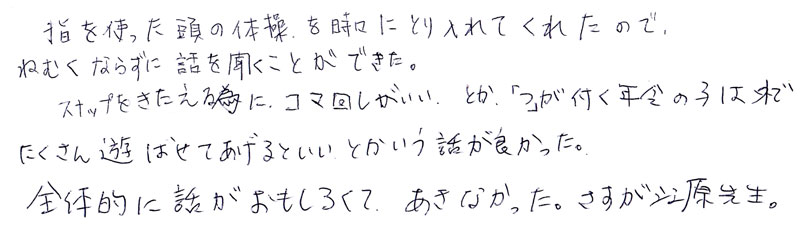 指を使った頭の体操を時々にとり入れてくれたので、
ねむくならずに話を聞くことができた。
スナップをきたえる為に、コマ回しがいい、とか、「つ」が付く年令の子は外で
たくさん遊ばせてあげるといいとかいう話が良かった。
全体的に話がおもしろくて、あきなかった。さすが江原先生。